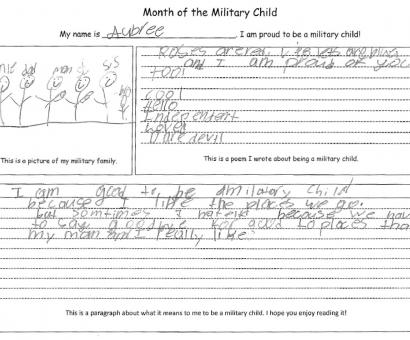 Month of the Military Child
My name is Aubree. I am proud to be a military child!
Roses are red, violets are blue
and I am proud of you
too!
cool
Hello
Independent
Loved
Daredevil
dad mom sis
This is a picture of my military family.
This is a poem I wrote about being a military child.
I am glad to be a military child
because I like the places we go.
but somtimes I hate it because we have
to say goodbye for good to places that
my mom and I really like.
This is a paragraph about what it means to me to be a military child. I hope you enjoy reading it!